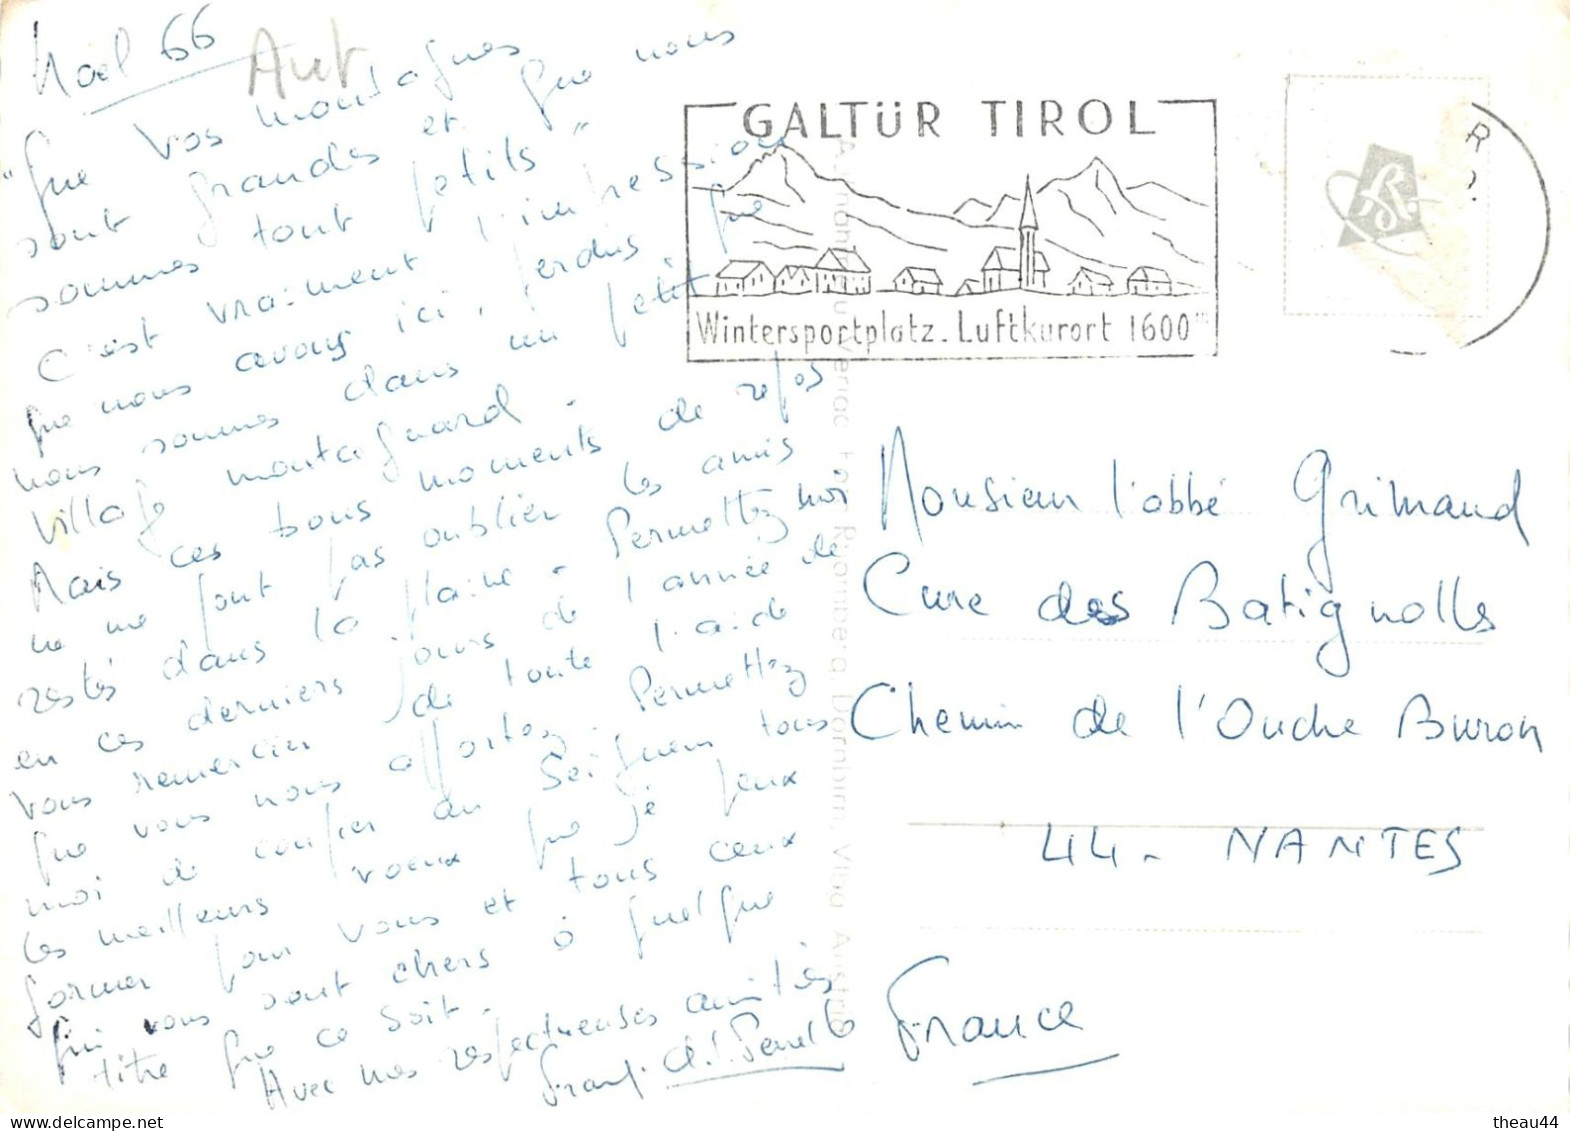 Noël 66
Aut
"Que vos montagnes
sont grandes et que nous
sommes tout petits"
C'est vraiment l'impression
que nous avons ici, perdus que
nous sommes dans un petit
village montagnard.
Mais ces bons moments de repos
ne me font pas oublier les amis
restés dans la plaine. Permettez moi
en ces derniers jours de l'année de
vous remercier de toute l'aide
que vous nous apportez. Permettez
moi de confier au Seigneur tous
les meilleurs voeux que je peux
former pour vous et tous ceux
qui vous sont chers à quelque
titre que ce soit.
Avec nos respectueuses amitiés
GALTÜR TIROL
Wintersportplatz. Luftkurort 1600m
R
Monsieur l'abbé Grimaud
Cure des Batignolles
Chemin de l'Ouche Buron
44 - NANTES
France
theau44